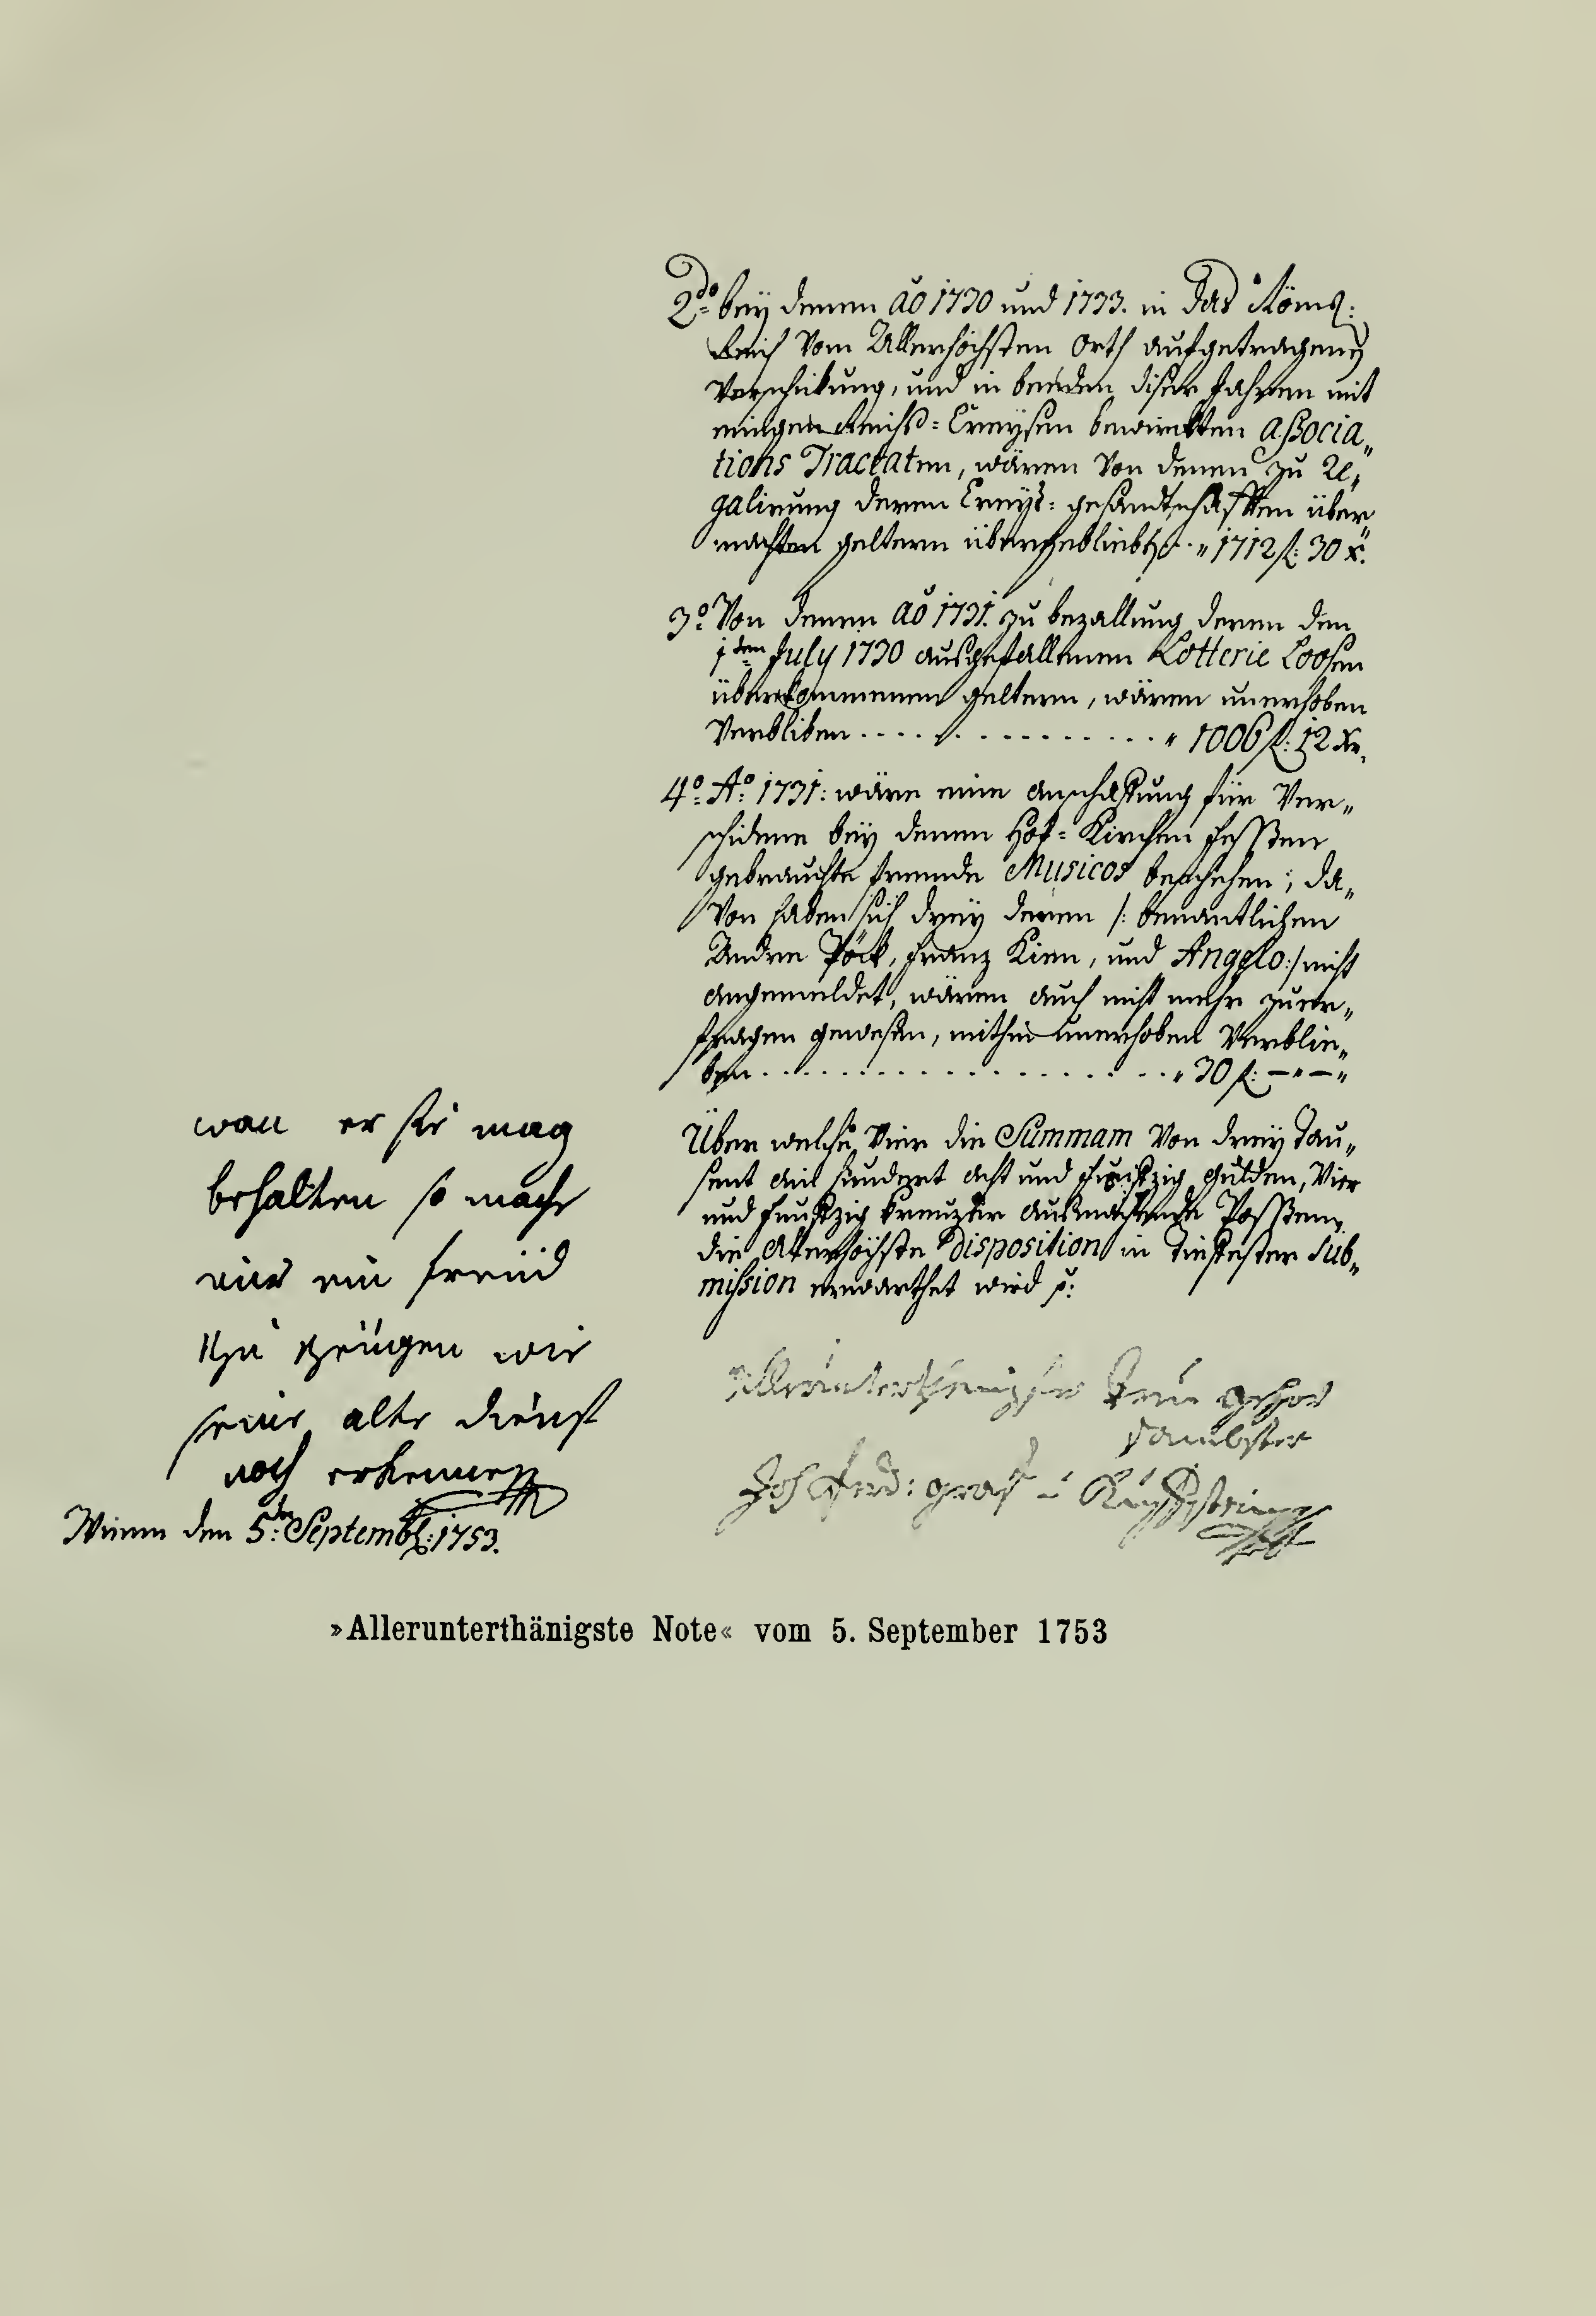 2do bey denen ao 1730 und 1733. in das Röms:
Reich Vom Allerhöchsten Orth aufgetragenen
Verschikung, und in beeden diser Jahren mit
einigen Reichs=Creysen bewirckten Associa„
tions Tractaten, wären Von denen zu Re„
galirung deren Creys=gesandtschafften über„
machten geltern übergeblieben „ 1712 f: 30 x.
3o: Von denen ao 1731. zu bezallung deren den
1ten July 1730 ausgefallenen Lotterie Loosen
überkommenen geltern, wären unerhoben
Verbliben . . . . . . . . . . . . . . . „ 1006 f: 12 xr.
4o: Ao: 1731: wäre eine anschaffung für Ver„
schidene bey denen Hof=Kirchen Festen
gebrauchte fremde Musicos beschehen; da„
Von haben sich drey deren /: benantlichen
Andre Pöck, Franz Kien, und Angelo :/ nicht
angemeldet, wären auch nicht mehr zuer„
fragen gewesen, mithin unerhoben Verblie„
ben . . . . . . . . . . . . . . . . . . „ 30 f: — „ — „
Über welche Vier die Summam Von drey Tau„
sent ein hundert acht und Funfzig gulden, Vier
und Funfzig kreuzer ausmachende Posten,
die Allerhöchste Disposition in Tiefester Sub„
mission erwarthet wird p:
Allerunterthenigster Treu gehor
sambster
Joh Ferd: graf v Kueffstein
wan er sie mag
behalten so mache
mir ein freüd
zu zeügen wie
seine alte dienst
noch erkenne
Wienn den 5ten: Septembr: 1753.
»Allerunterthänigste Note« vom 5. September 1753